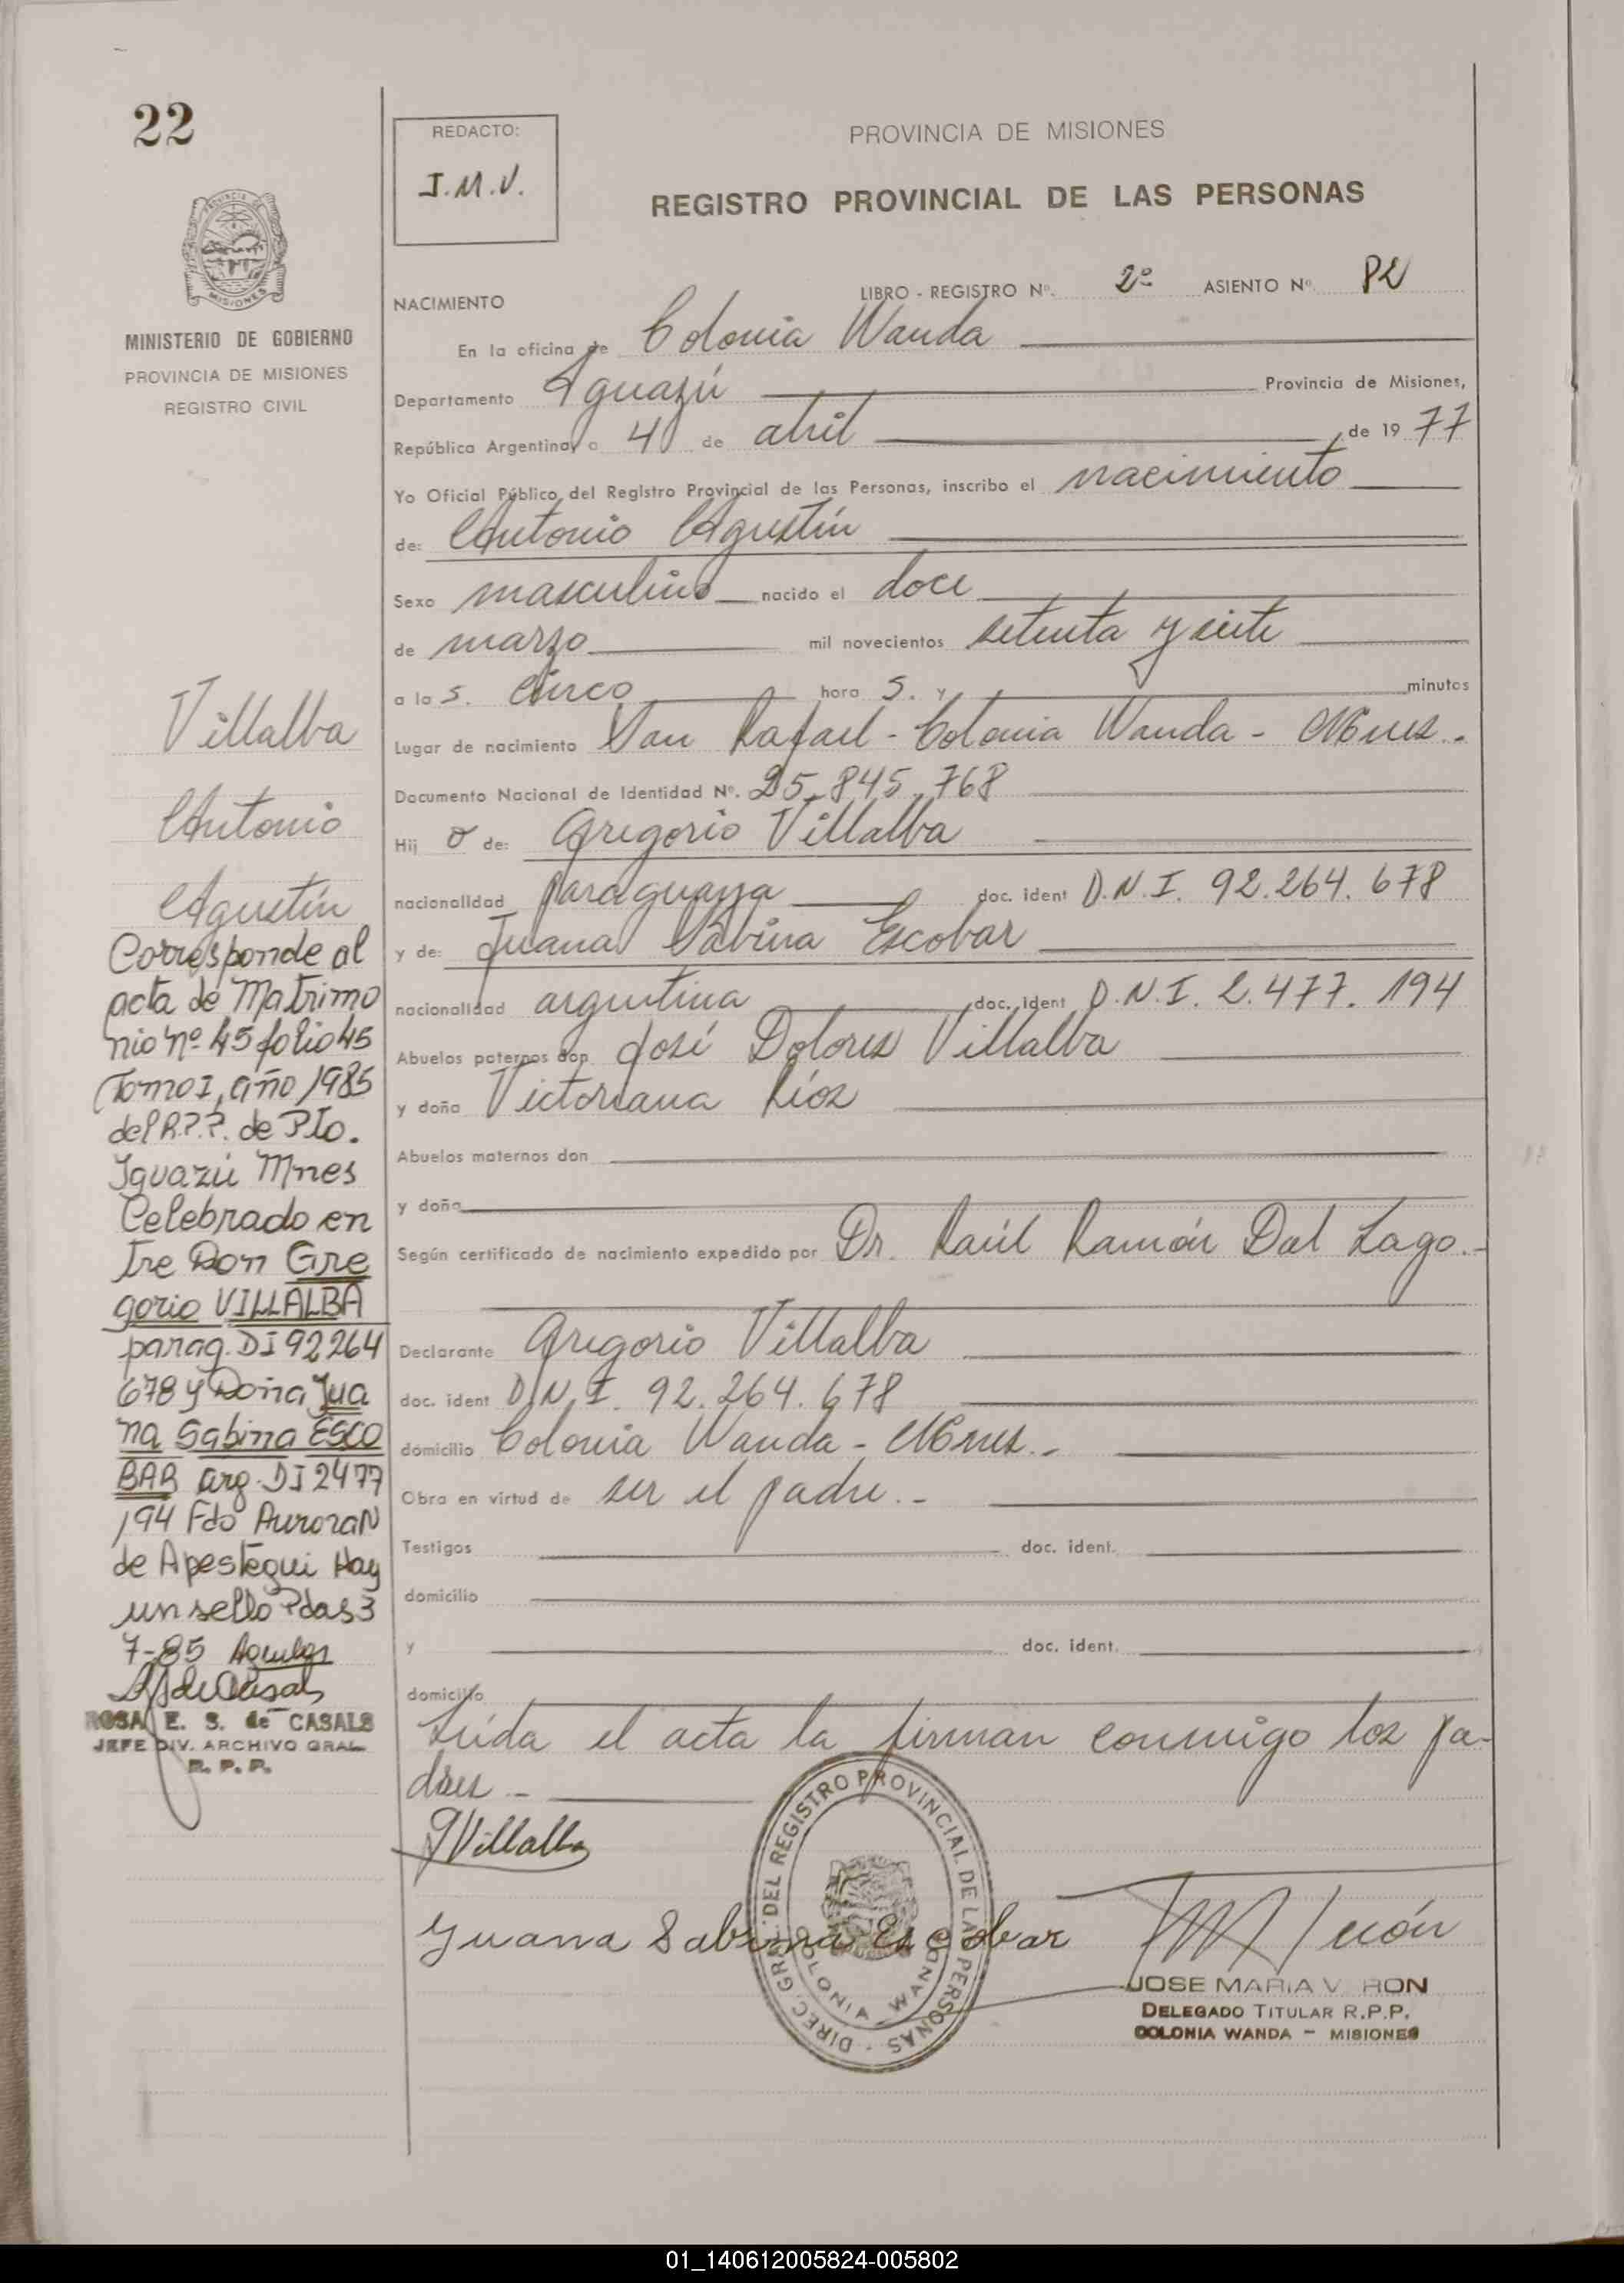 22
REDACTO:
J.M.V.
PROVINCIA DE MISIONES
REGISTRO PROVINCIAL DE LAS PERSONAS
MINISTERIO DE GOBIERNO
PROVINCIA DE MISIONES
REGISTRO CIVIL
NACIMIENTO
LIBRO - REGISTRO Nº. 2º ASIENTO Nº 82
En la oficina de Colonia Wanda
Departamento Iguazú Provincia de Misiones,
República Argentina, a 4 de abril de 1977
Yo Oficial Público, del Registro Provincial de las Personas, inscribo el nacimiento
de: Antonio Agustín
Sexo masculino nacido el doce
de marzo mil novecientos setenta y siete
a las. cinco hora s. y minutos
Lugar de nacimiento San Rafael - Colonia Wanda - Mnes.-
Documento Nacional de Identidad Nº. 25.845.768
Hij o de: Gregorio Villalba
nacionalidad paraguaya doc. ident D.N.I. 92.264.678
y de: Juana Sabina Escobar
nacionalidad argentina doc. ident D.N.I. 2.477.194
Abuelos paternos don José Dolores Villalba
y doña Victoriana Ríos
Abuelos maternos don
y doña
Según certificado de nacimiento expedido por Dr. Raúl Ramón Dal Lago.-
Declarante Gregorio Villalba
doc. ident D.N.I. 92.264.678
domicilio Colonia Wanda - Mnes.-
Obra en virtud de ser el padre.-
Testigos doc. ident.
domicilio
y doc. ident.
domicilio
Leída el acta la firman conmigo los pa-
dres.-
Villalba
Antonio
Agustín
Corresponde al
acta de Matrimo
nio nº 45 folio 45
Tomo I, año 1985
del R.P.P. de Pto.
Iguazú Mnes
Celebrado en
tre Don Gre
gorio VILLALBA
parag. DI 92264
678 y Doña Jua
na Sabina ESCO
BAR arg. DI 2477
194 Fdo Aurora N
de Apestegui Hay
un sello Pdas 3
7-85
ROSA E. S. de CASALS
JEFE DIV. ARCHIVO GRAL
R. P. P.
GVillalba
Juana Sabina Escobar
DIREC. GRAL. DEL REGISTRO PROVINCIAL DE LAS PERSONAS
COLONIA WANDA
JOSE MARIA V. RON
DELEGADO TITULAR R.P.P.
COLONIA WANDA - MISIONES
01_140612005824-005802